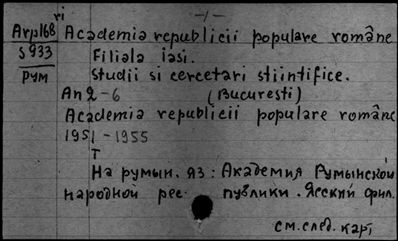 -1-
Arpl68 Academia republicii populare române
S 933 Filiala iasi.
рум Studii si cercetari stiintifice.
An 2-6 (Bucuresti)
Academia republicii populare române
1951-1955
Т
На румын. яз: Академия Румынской
народной рес публики. Ясский фил.
см. след. карт